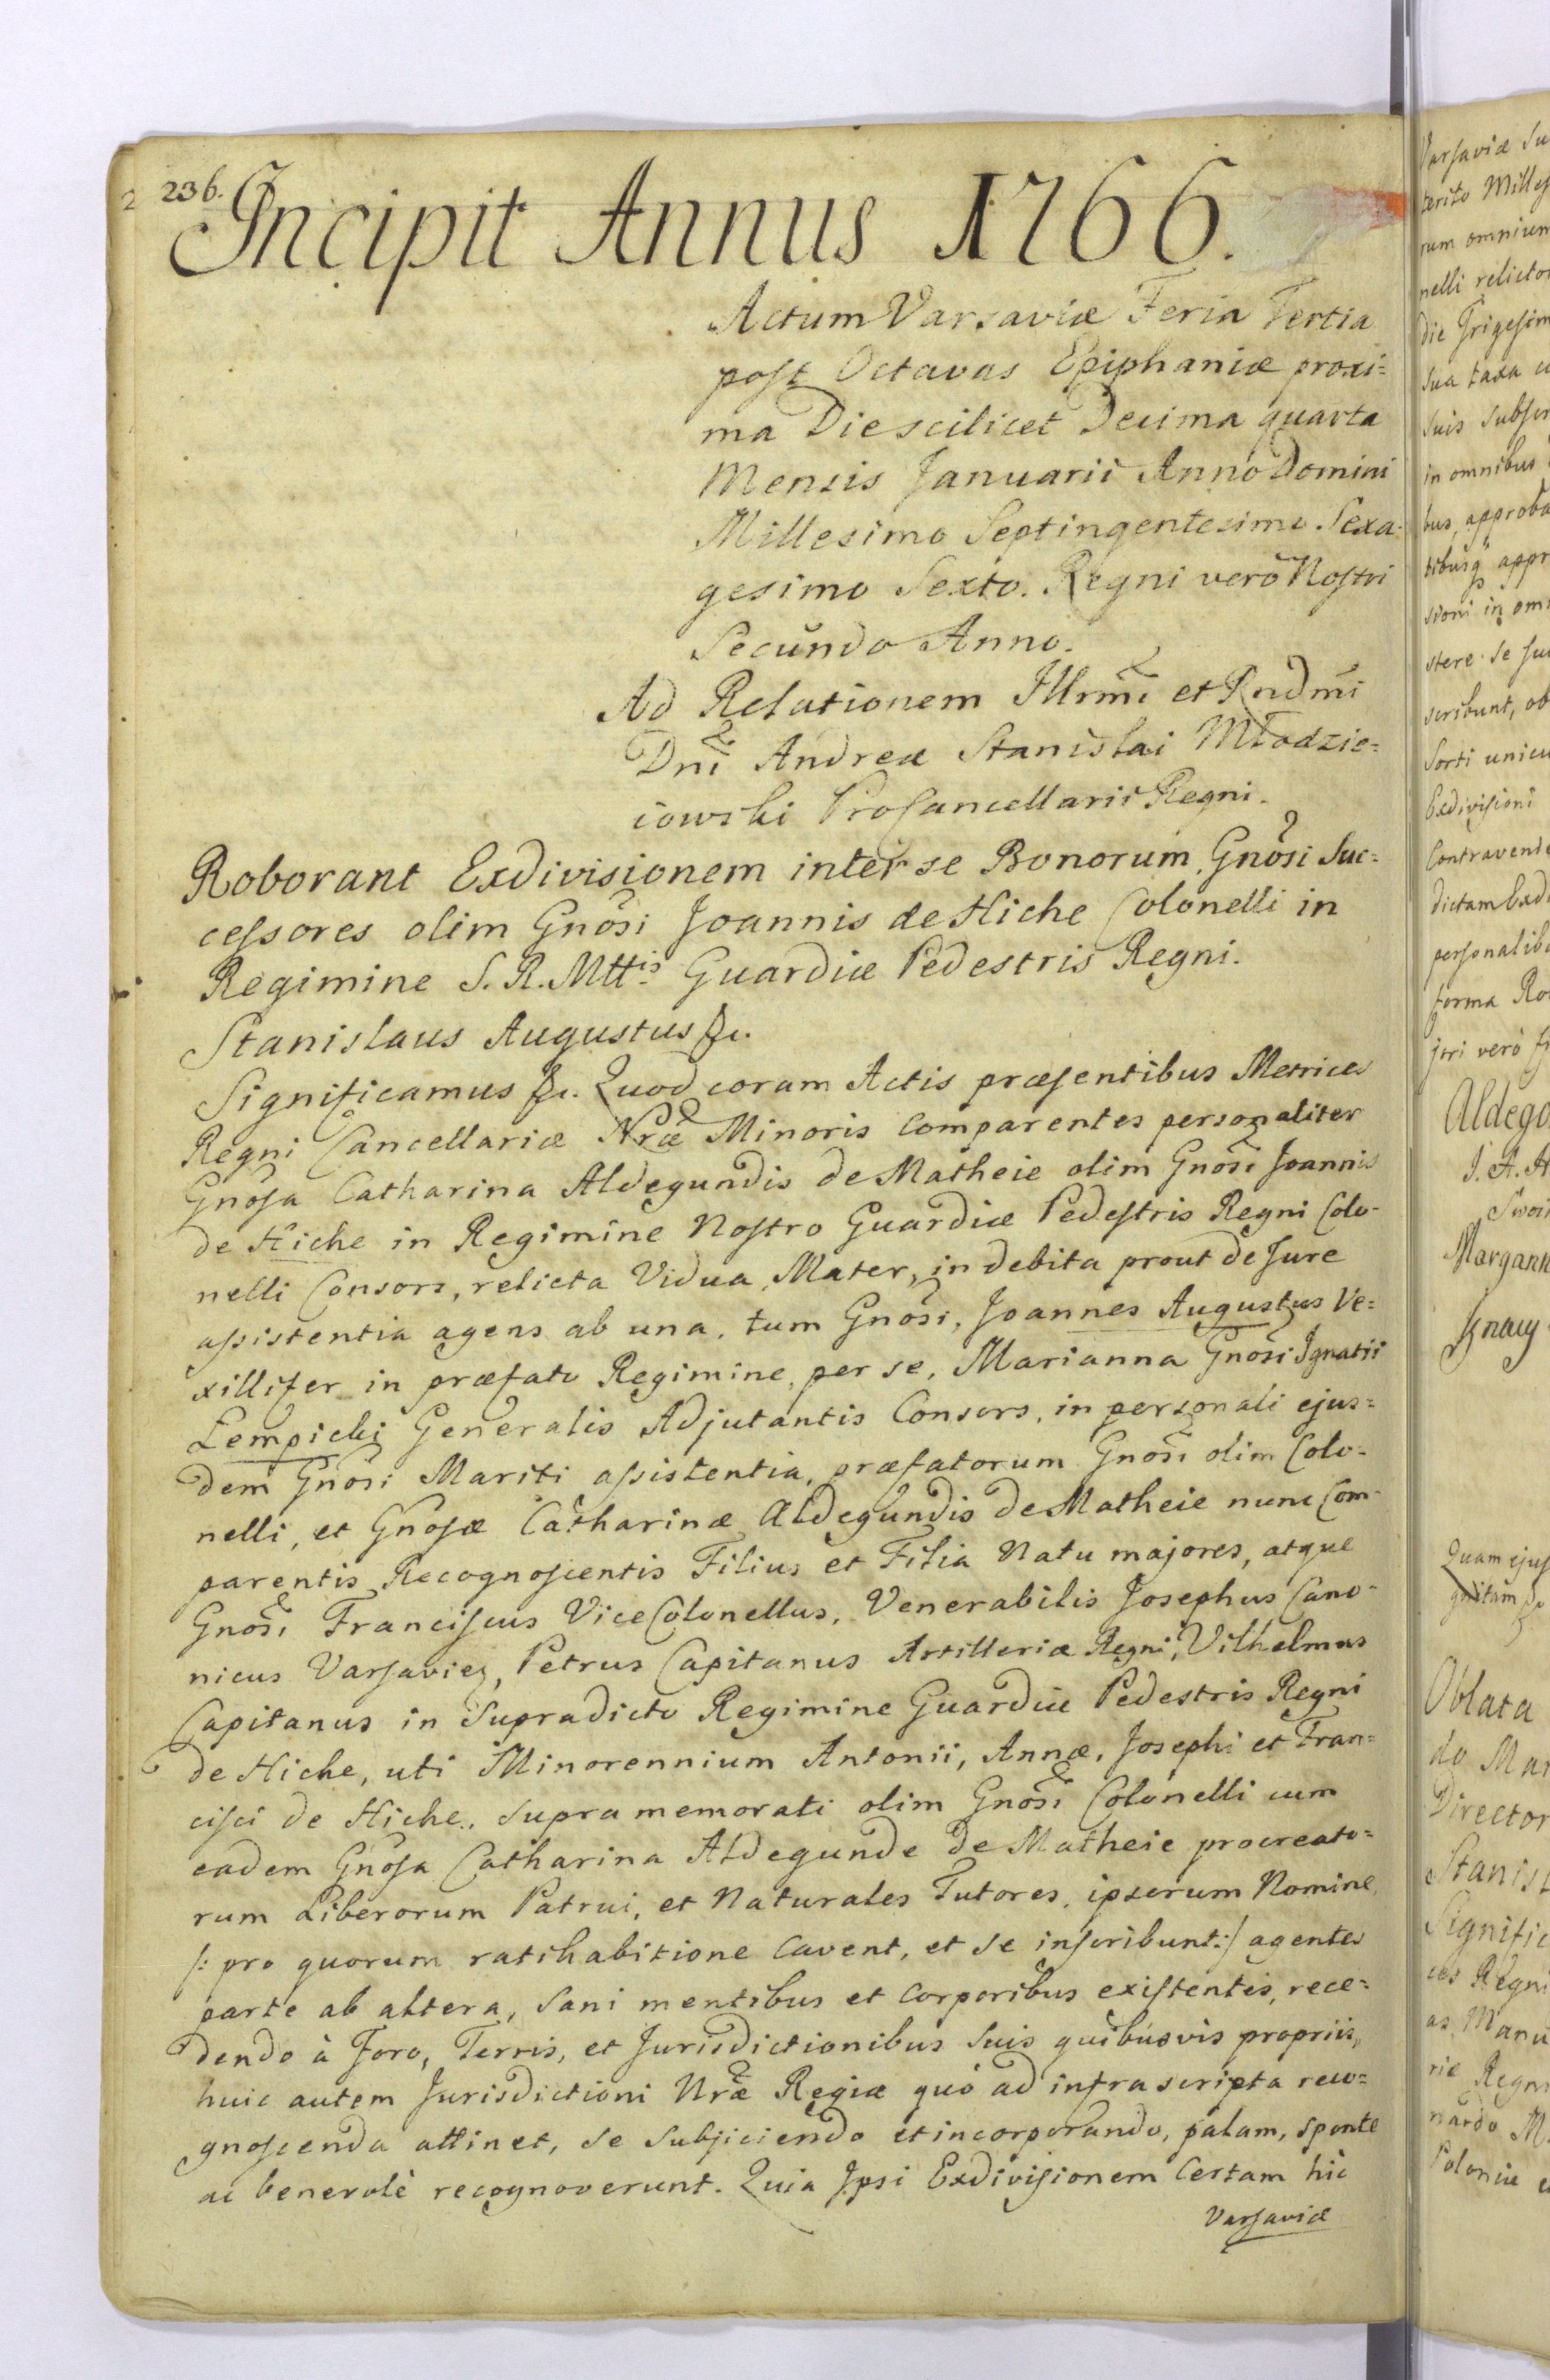 236.
Incipit Annus 1766.
Actum Varsaviæ Feria Tertia
post Octavas Epiphaniæ proxi=
ma Die scilicet Decima quarta
Mensis Januarii Anno Domini
Millesimo Septingentesimo Sexa=
gesimo Sexto. Regni verò Nostri
Secundo Anno.
Ad Relationem Illrmi et Rndmi
Dni Andreæ Stanislai Młodzie=
iowski ProCancellarii Regni.
Roborant Exdivisionem inter se Bonorum, Gnosi Suc=
cessores olim Gnosi Joannis de Hiche Colonelli in
Regimine S. R. Mttis Guardiæ Pedestris Regni.
Stanislaus Augustus &c.
Significamus &c. Quod coram Actis præsentibus Metrices
Regni Cancellariæ Nræ Minoris Comparentes personaliter
Gnosa Catharina Aldegundis de Matheie olim Gnosi Joannis
de Hiche in Regimine Nostro Guardiæ Pedestris Regni Colo-
nelli Consors, relicta Vidua, Mater, in debita prout de Jure
assistentia agens ab una, tum Gnosi, Joannes Augustus Ve=
xillifer in præfato Regimine, per se, Marianna Gnosi Ignatii
Lempicki Generalis Adjutantis Consors, in personali ejus=
dem Gnosi Mariti assistentia, præfatorum Gnosi olim Colo-
nelli, et Gnosæ Catharinæ Aldegundis de Matheie nunc Com-
parentis Recognoscentis Filius et Filia Natu majores, atque
Gnosi Franciscus ViceColonellus, Venerabilis Josephus Cano-
nicus Varsavien, Petrus Capitanus Artilleriæ Regni, Vilhelmus
Capitanus in Supradicto Regimine Guardiæ Pedestris Regni
de Hiche, uti Minorennium Antonii, Annæ, Josephi et Fran=
cisci de Hiche, supra memorati olim Gnosi Colonelli cum
eadem Gnosa Catharina Aldegunde de Matheie procreato=
rum Liberorum Patrui, et Naturales Tutores, ipsorum Nomine,
/: pro quorum ratihabitione Cavent, et se inscribunt :/ agentes
parte ab altera, Sani mentibus et Corporibus existentes, rece=
dendo à Foro, Terris, et Jurisdictionibus Suis quibusvis propriis,
huic autem Jurisdictioni Nræ Regiæ quò ad infrascripta reco=
gnoscenda attinet, se Subjiciendo et incorporando, palam, sponte
ac benevolè recognoverunt. Quia Ipsi Exdivisionem Certam hic
Varsaviæ